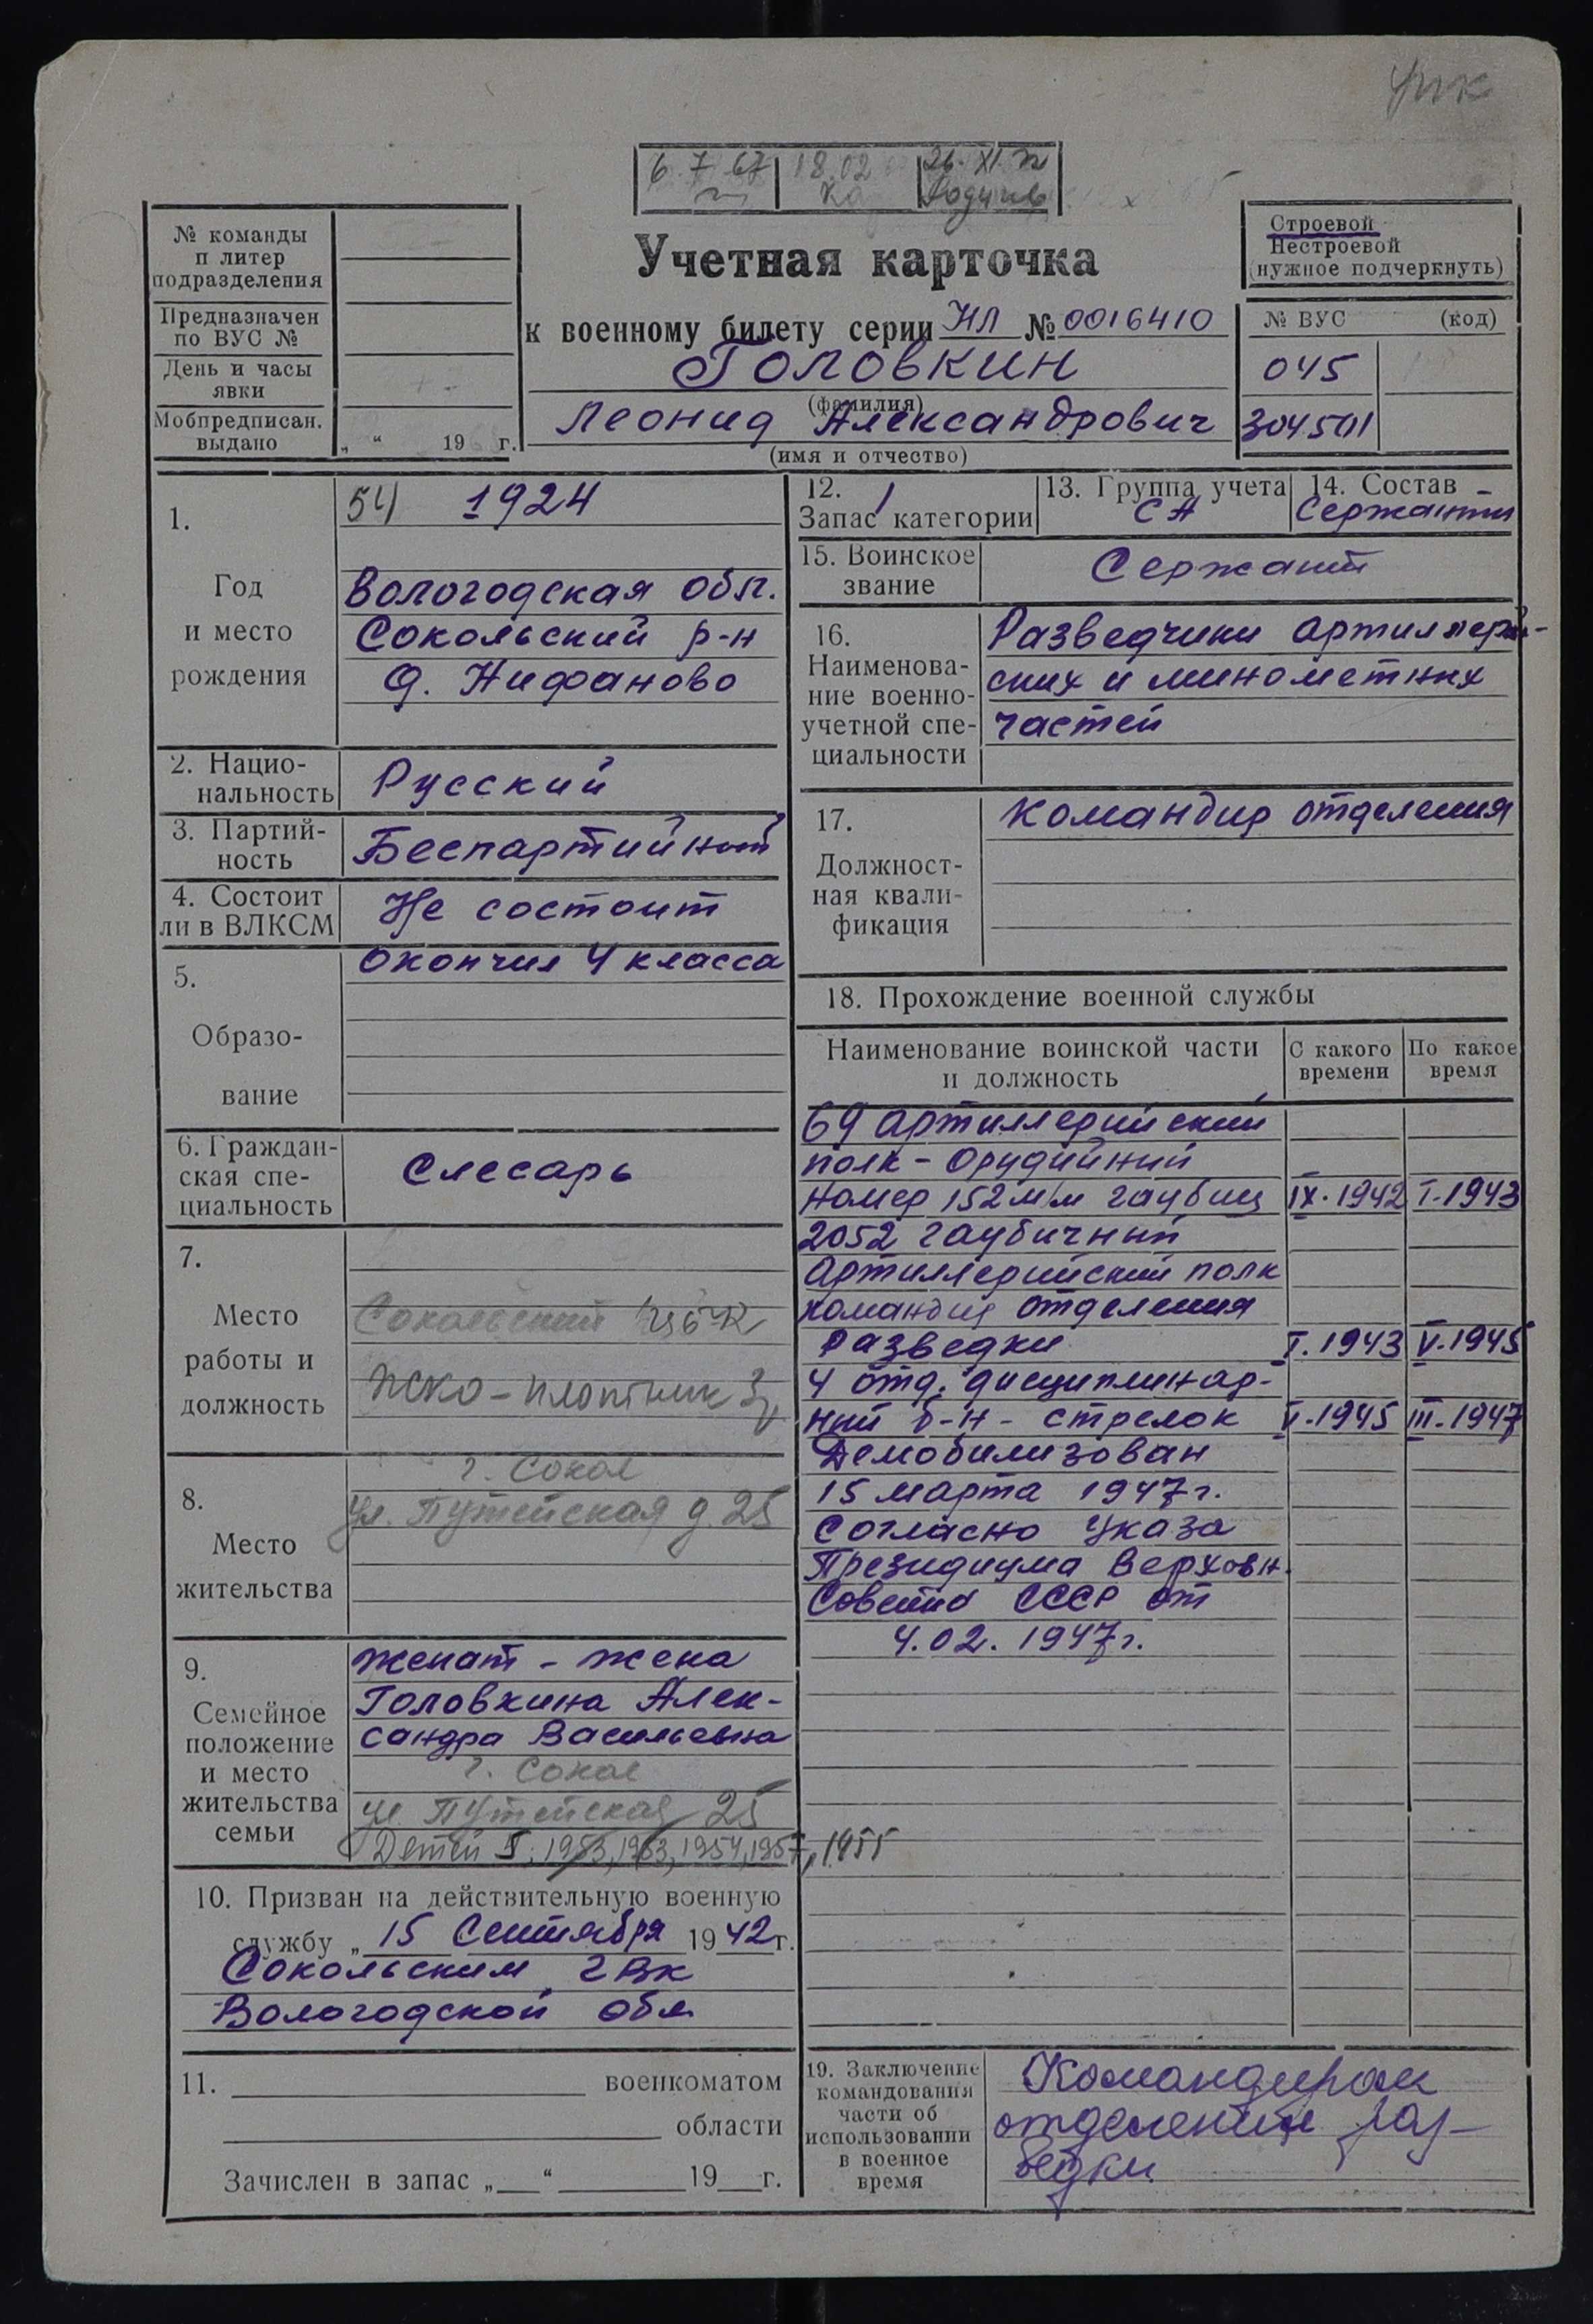 6.7.67 18.02 26.XI.72
№ команды
п литер
подразделения
Предназначен
по ВУС №
День и часы
явки
Мобпредписан.
выдано „ “ 19 г.
Учетная карточка
к военному билету серии НЛ № 0016410
Головкин
(фамилия)
Леонид Александрович
(имя и отчество)
Строевой
Нестроевой
(нужное подчеркнуть)
№ ВУС (код)
045
304501
1.
Год
и место
рождения
54 1924
Вологодская обл.
Сокольский р-н
д. Нифаново
2. Нацио-
нальность
Русский
3. Партий-
ность
Беспартийный
4. Состоит
ли в ВЛКСМ
Не состоит
5.
Образо-
вание
Окончил 4 класса
6. Граждан-
ская спе-
циальность
Слесарь
7.
Место
работы и
должность
Сокольский ЦБК
ЖКО - плотник
8.
Место
жительства
г. Сокол
ул. Путейская д. 25
9.
Семейное
положение
и место
жительства
семьи
Женат - жена
Головкина Алек-
сандра Васильевна
г. Сокол
ул. Путейская 25
Детей 1953, 1963, 1954, 1957, 1955
10. Призван на действительную военную
службу „ 15 Сентября 1942 г.
Сокольским ГВК
Вологодской обл
11. военкоматом
области
Зачислен в запас „ “ 19 г.
12. 1
Запас категории
13. Группа учета
СА
14. Состав
Сержанты
15. Воинское
звание
Сержант
16.
Наименова-
ние военно-
учетной спе-
циальности
Разведчики артиллерий-
ских и минометных
частей
17.
Должност-
ная квали-
фикация
Командир отделения
18. Прохождение военной службы
Наименование воинской части
и должность
С какого
времени
По какое
время
69 артиллерийский
полк - Орудийный
номер 152 м/м гаубиц IX.1942 I.1943
2052 гаубичный
Артиллерийский полк
командир отделения
Разведки I.1943 V.1945
4 отд. дисциплинар-
ный б-н - стрелок V.1945 III.1947
Демобилизован
15 марта 1947 г.
Согласно Указа
Президиума Верховн.
Совета СССР от
4.02.1947 г.
19. Заключение
командования
части об
использовании
в военное
время
Командиром
отделения раз-
ведки